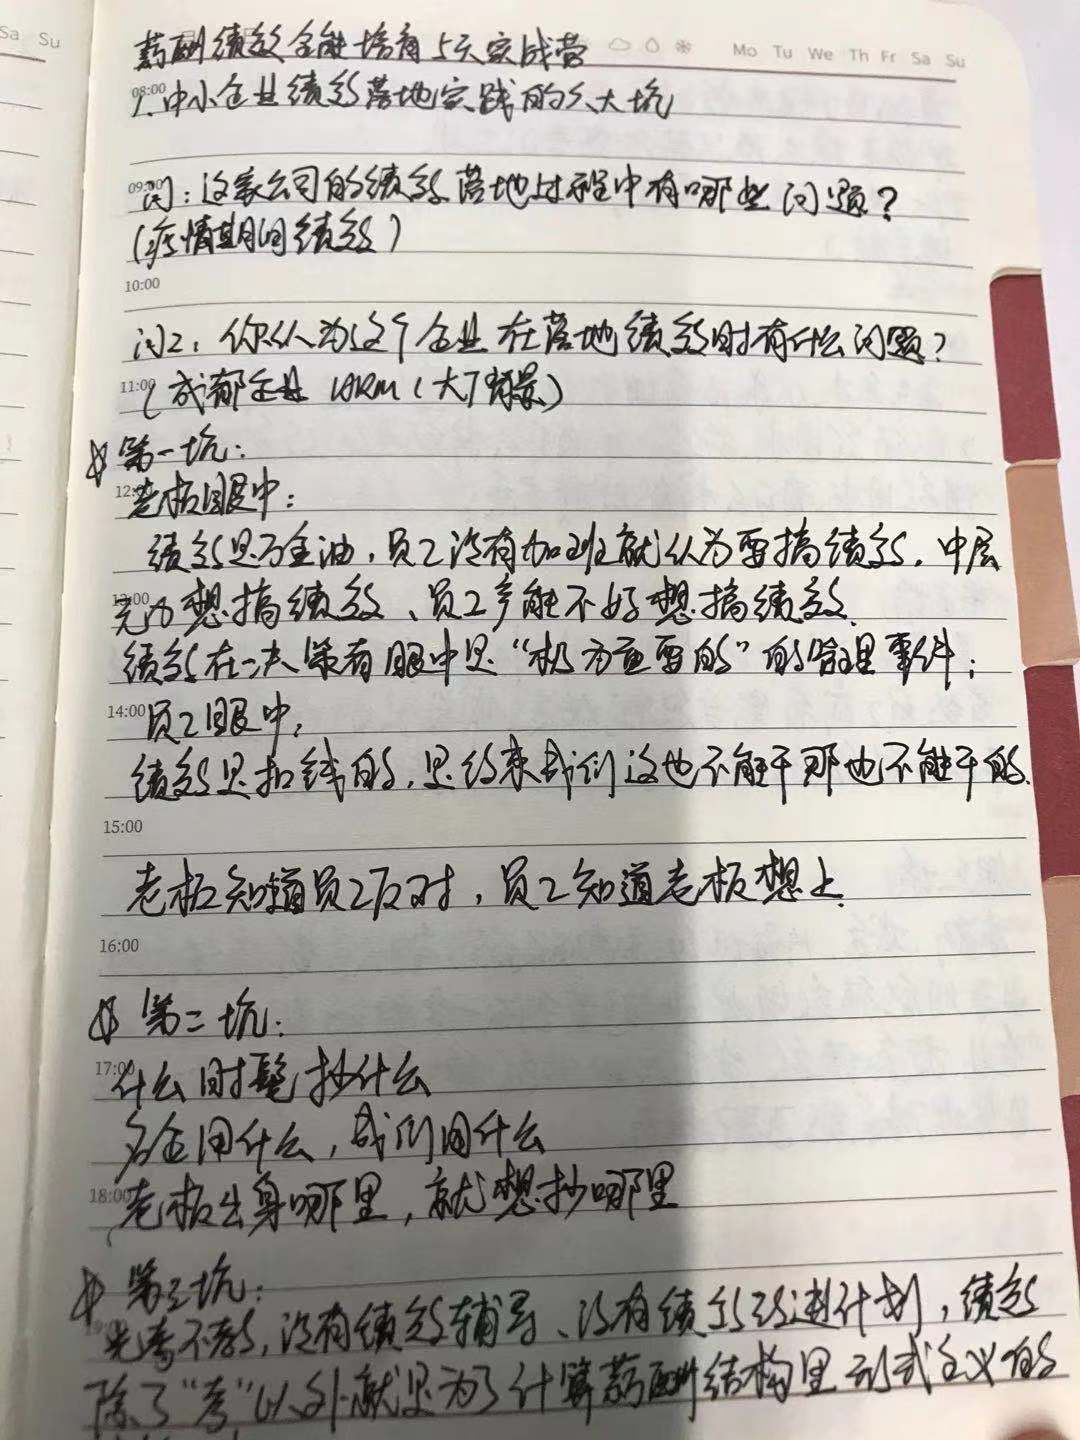 Sa Su
薪酬绩效全能培育5天实战营
Mo Tu We Th Fr Sa Su
08:00
1.中小企业绩效落地实践的八大坑
09:00
问：这家公司的绩效落地过程中有哪些问题？
(疫情期间绩效)
10:00
问2：你认为这个企业在落地绩效时有什么问题？
11:00
(成都企业 HRM(大厂背景)
第一坑：
12:00
老板眼中：
绩效是万金油，员工没有加班就认为要搞绩效，中层
13:00
无力想搞绩效、员工产能不好想搞绩效.
绩效在决策者眼中是“极为重要的”的管理事件；
14:00
员工眼中：
绩效是扣钱的，是约束我们这也不能干那也不能干的.
15:00
老板知道员工反对，员工知道老板想上.
16:00
第二坑：
17:00
什么时髦抄什么
名企用什么，我们用什么
18:00
老板出身哪里，就想抄哪里
第三坑：
光考不教，没有绩效辅导、没有绩效改进计划，绩效
除了“考”以外就是为了计算薪酬结构里形式主义的